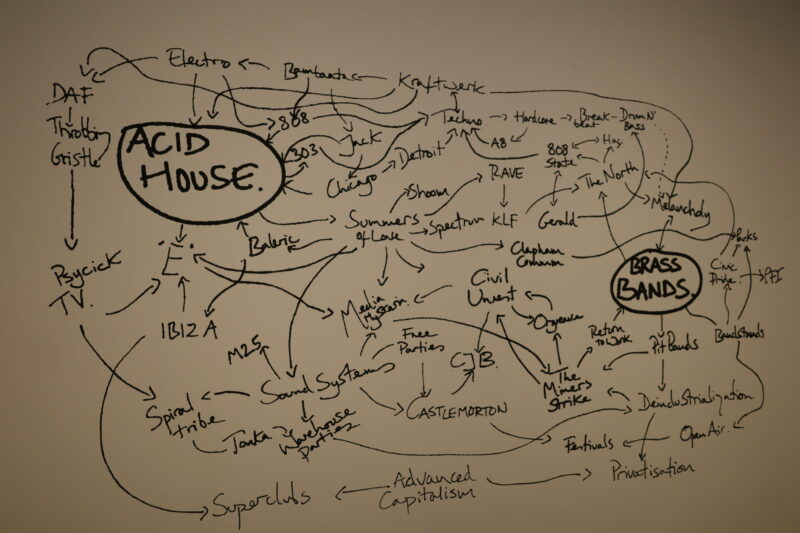 Electro
Bambaataa
Kraftwerk
DAF
Throbbing
Gristle
808
303
Jack
Techno
Hardcore
Break
beat
Drum N'
Bass
ACID
HOUSE.
Detroit
A8
808
State
Hac
Chicago
Shoom
RAVE
The North
Melancholy
Summers
of Love
Spectrum
KLF
Gerald
Baleric
Clapham
Common
Parks
'E'.
Psycick
TV.
Media
Civil
Unrest
BRASS
BANDS.
Civic
Pride
PFI
IBIZA
M25
Free
Parties
Orgreave
Return
to Work
Pit Bands
Bandstands
CJB.
Sound Systems
The
Miners
Strike
Spiral
tribe
CASTLEMORTON
Deindustrialization
Tonka
Warehouse
Parties
Festivals
Open Air.
Privatisation
Superclubs
Advanced
Capitalism